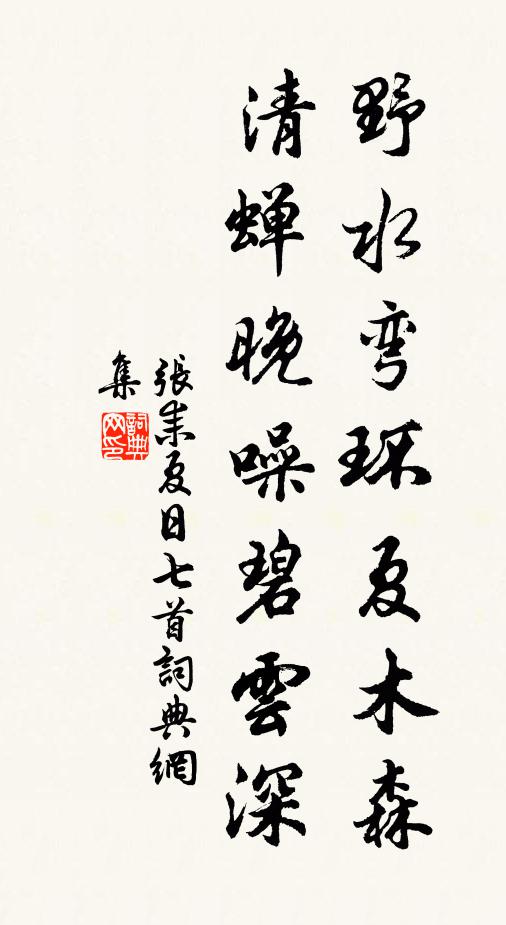 野水弯环夏木森
清蝉晚噪碧雲深
張耒夏日七首詞典網
集
詞典
网印